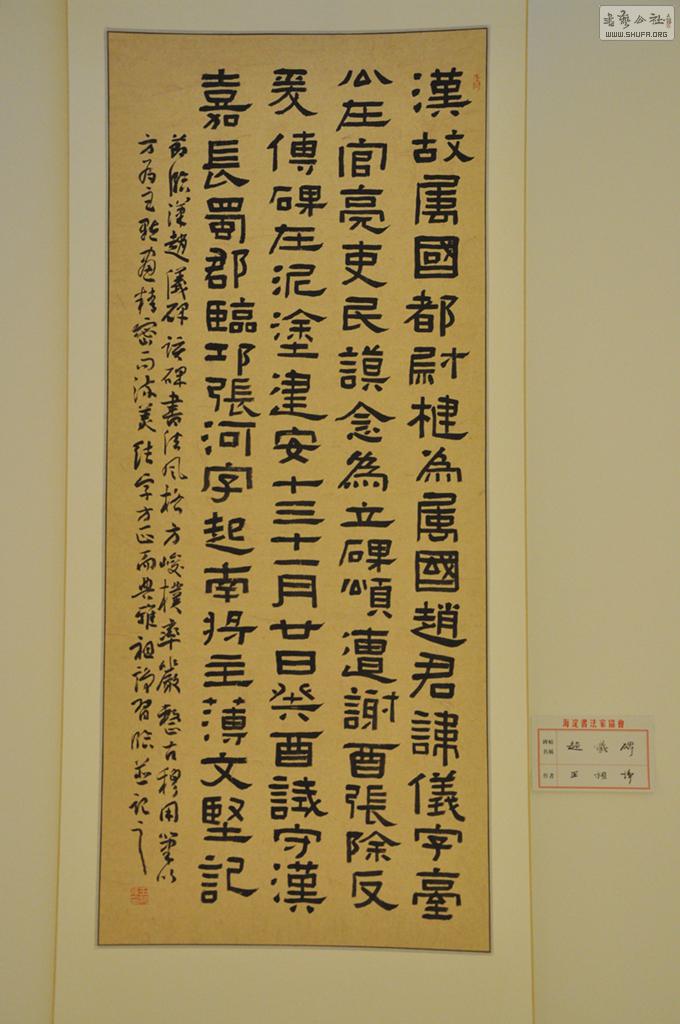 漢故属國都尉楗為属國趙君諱儀字臺
公在官亮吏民謨念為立碑頌遭謝酉張除反
爰傳碑在泥塗建安十三十一月廿日癸酉試守漢
嘉長蜀郡臨邛張河字起南将主薄文堅記
節臨漢趙儀碑該碑書法風格方峻樸率嚴整古穆用筆以
方為主點畫精密而流美結字方正而典雅祖諍習臨並記之
海淀書法家協會
碑帖名稱 趙儀碑
作者 王祖諍
書藝公社
WWW.SHUFA.ORG